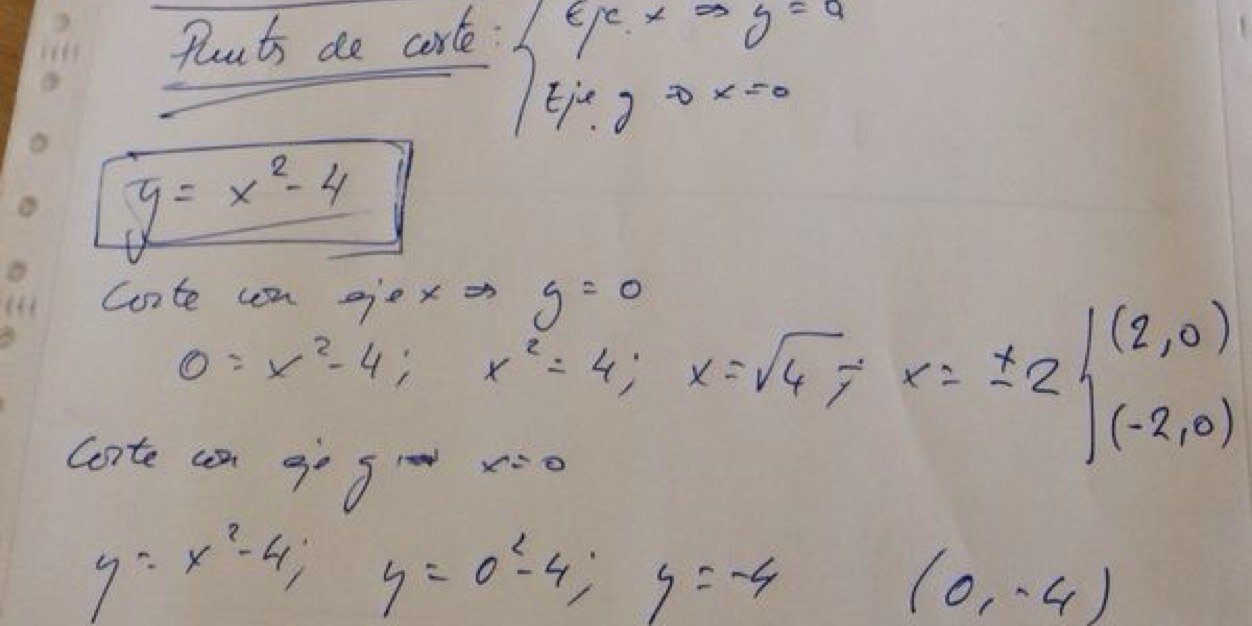 Puntos de corte: { Eje x ⇒ y = 0
Eje y ⇒ x = 0
y = x² - 4
Corte con eje x ⇒ y = 0
0 = x² - 4; x² = 4; x = √4; x = ±2 { (2,0)
(-2,0)
Corte con eje y ⇒ x = 0
y = x² - 4; y = 0² - 4; y = -4 (0, -4)